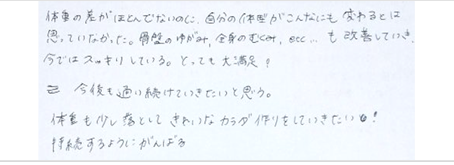 体重の差がほとんどないのに、自分の体型がこんなにも変わるとは
思っていなかった。骨盤のゆがみ、全身のむくみ、etc... も改善していき、
今ではスッキリしている。とっても大満足!
今後も通い続けていきたいと思う。
体重も少し落として きれいなカラダ作りをしていきたい!
持続するようにがんばる